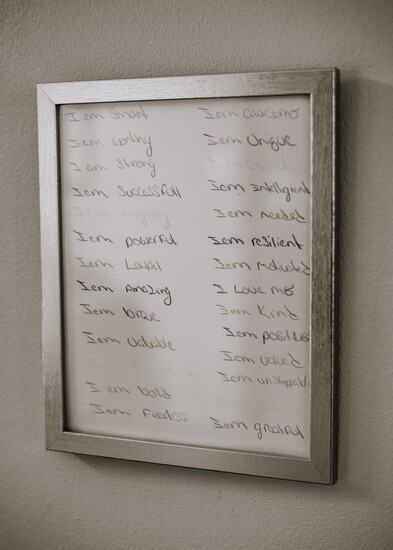 I am Smart
I am worthy
I am Strong
I am Successfull
I am mighty
I am powerful
I am Loyal
I am Amazing
I am brave
I am Valuable
I am bold
I am Fearless
I am awesome
I am Unique
I am Intelligent
I am needed
I am resilient
I am Motivated
I Love me
I am Kind
I am positive
I am valued
I am unstoppable
I am grateful